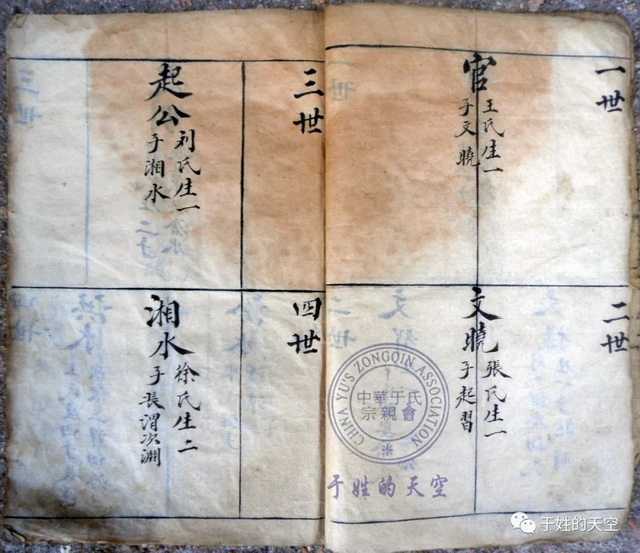 一世
官
王氏生一
子文曉
二世
文曉
張氏生一
子起習
三世
起公
刘氏生一
子湘水
四世
湘水
徐氏生二
子長渭次淵
CHINA YU'S ZONGQIN ASSOCIATION
中華于氏
宗親會
于姓的天空
于姓的天空